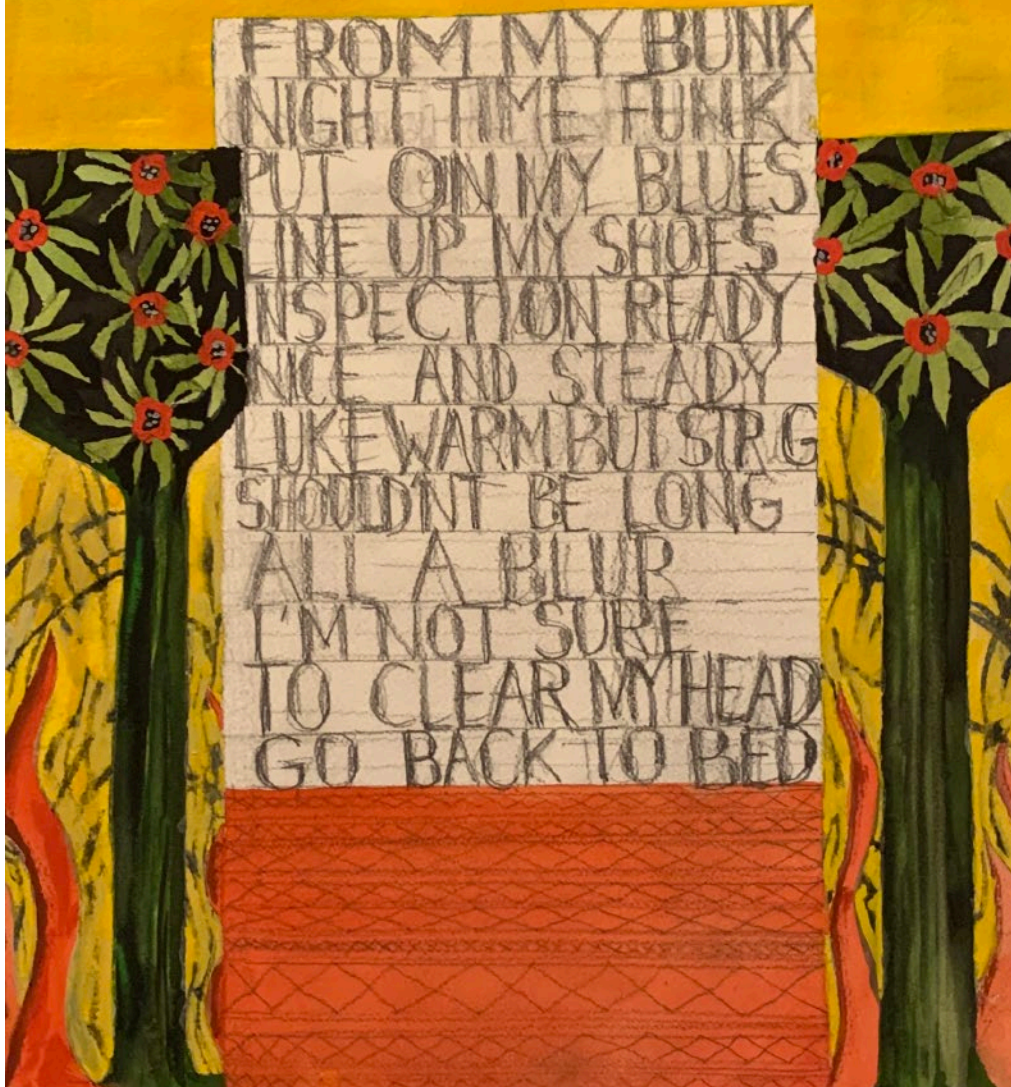 FROM MY BUNK
NIGHT TIME FUNK
PUT ON MY BLUES
LINE UP MY SHOES
INSPECTION READY
NICE AND STEADY
LUKEWARM BUT STR.G
SHOULDN'T BE LONG
ALL A BLUR
I'M NOT SURE
TO CLEAR MY HEAD
GO BACK TO BED